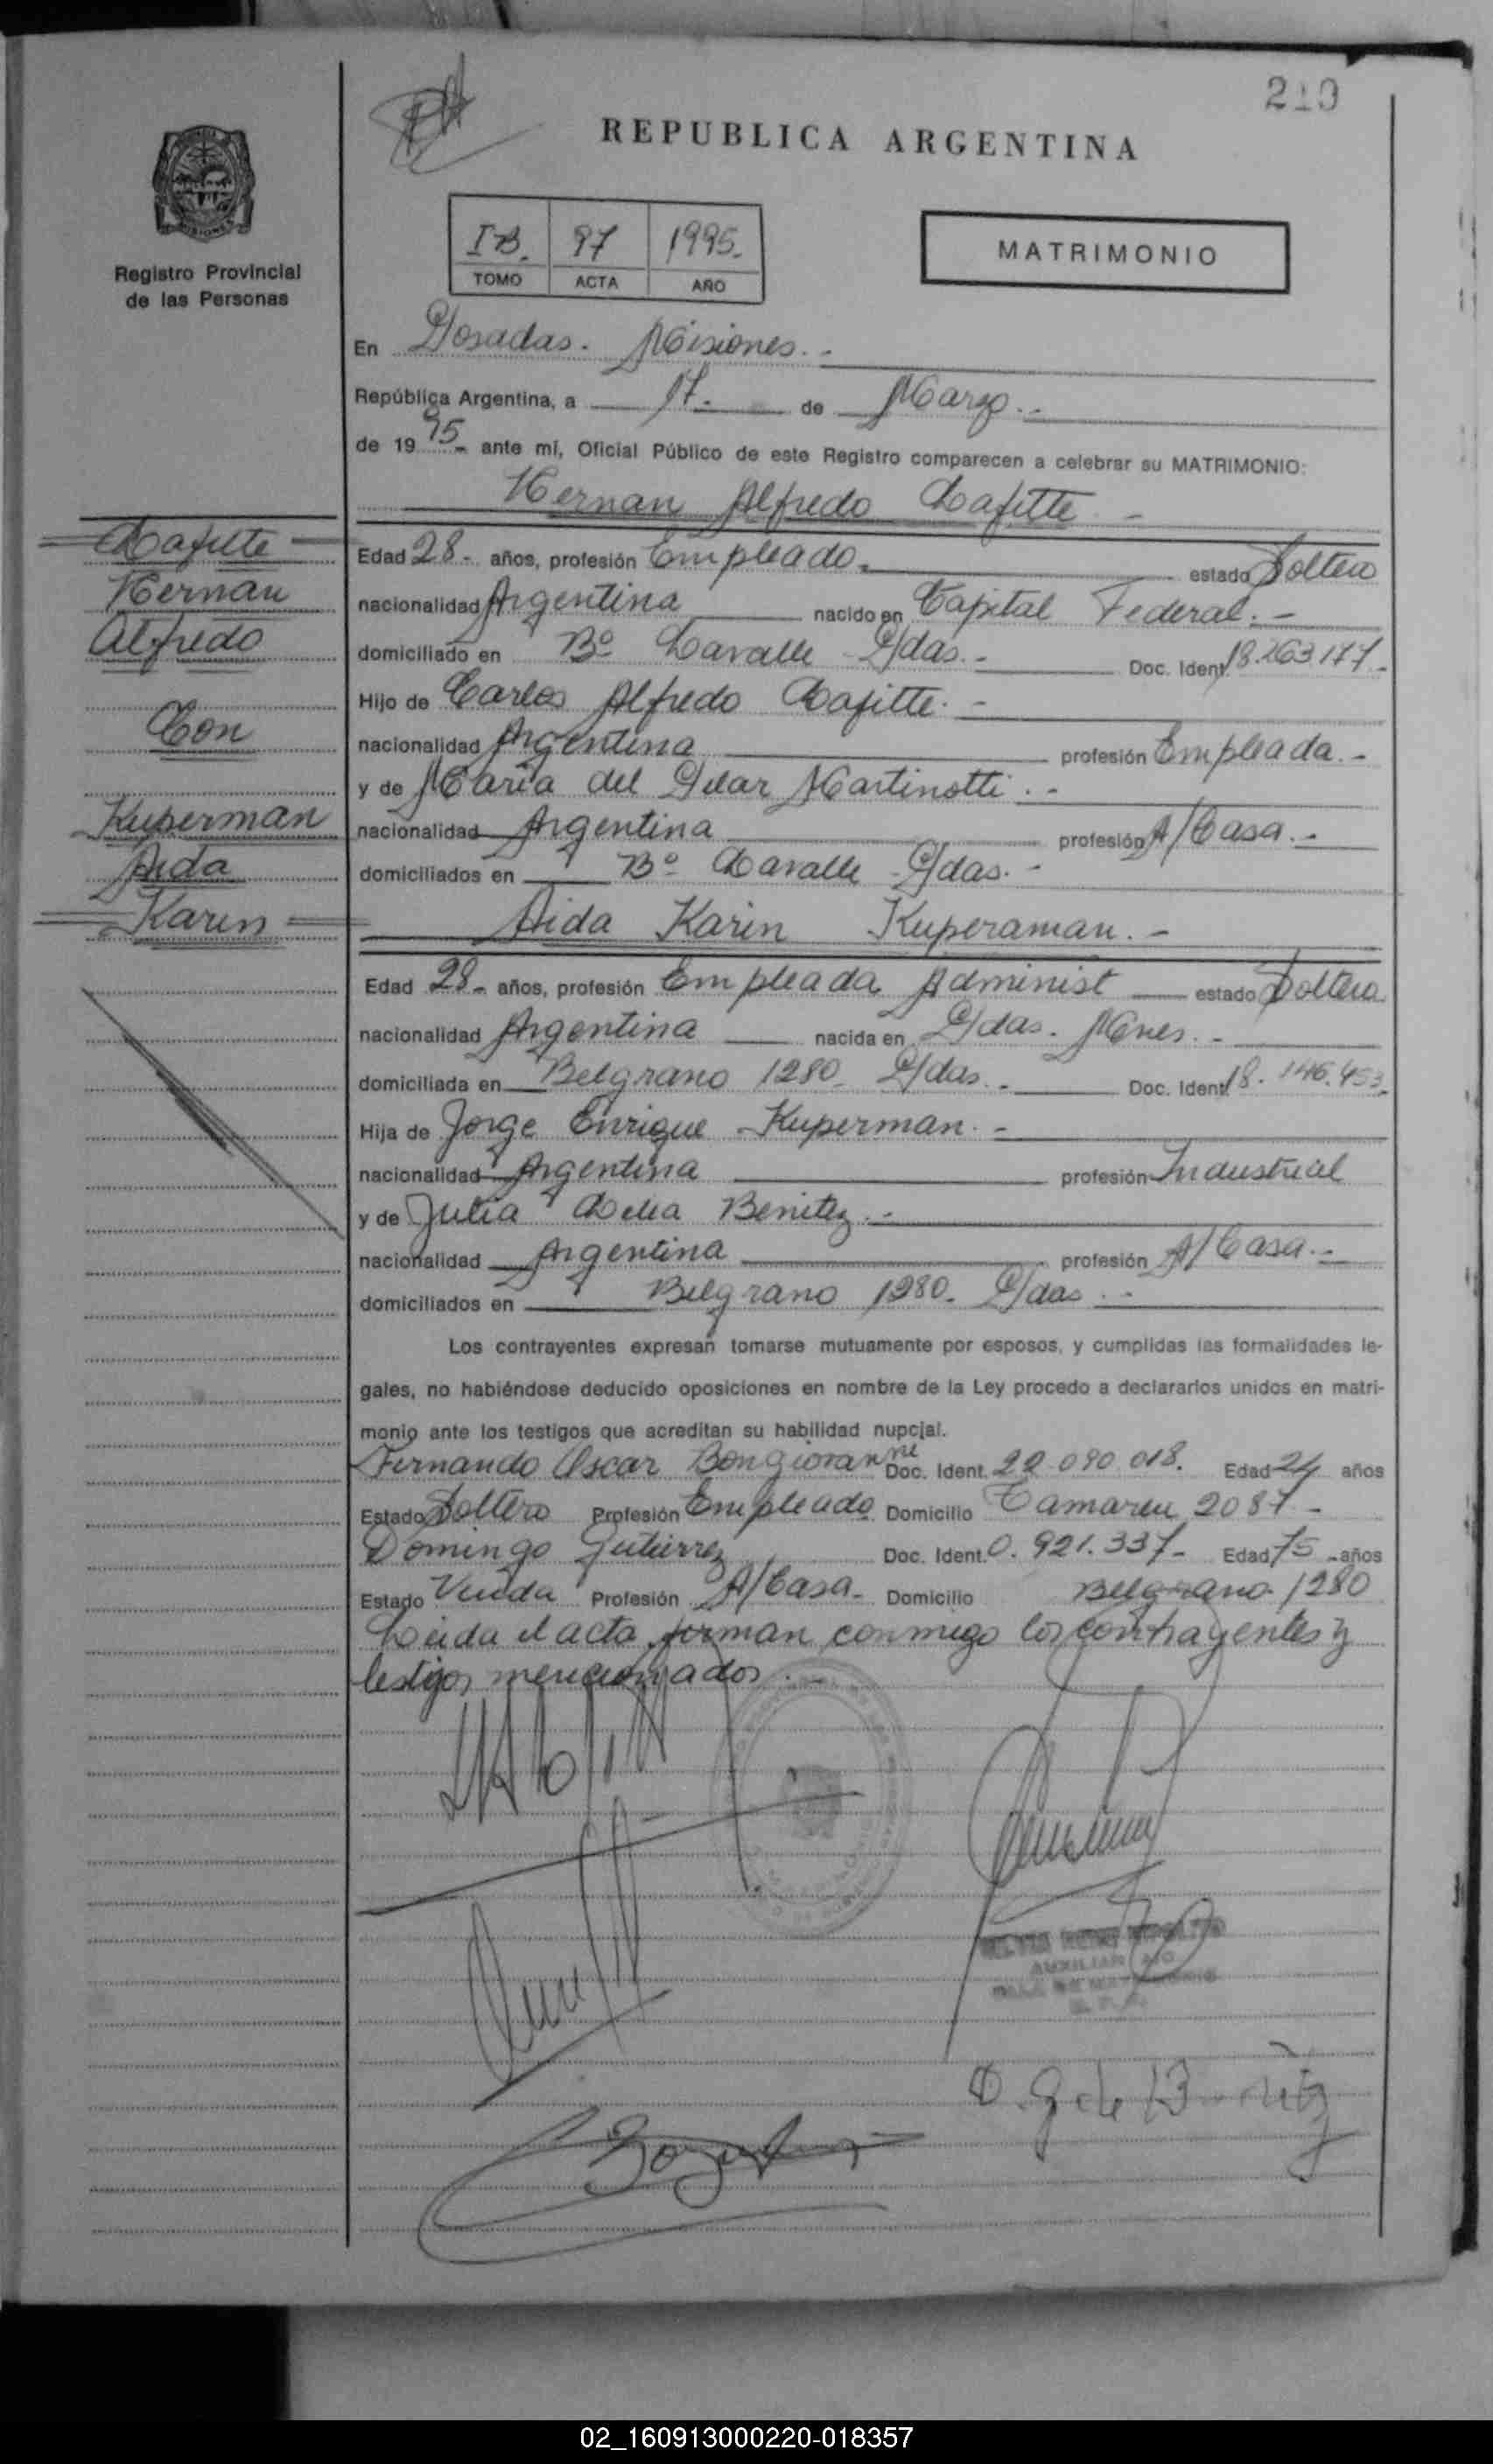 210
REPUBLICA ARGENTINA
Registro Provincial
de las Personas
IB. 97 1995.
TOMO ACTA AÑO
MATRIMONIO
En Posadas. Misiones.
República Argentina, a 17. de Marzo.
de 1995 ante mí, Oficial Público de este Registro comparecen a celebrar su MATRIMONIO:
Hernan Alfredo Lafitte
Lafitte
Hernan
Alfredo
Con
Kuperman
Aida
Karin
Edad 28 años, profesión Empleado. estado Soltero
nacionalidad Argentina nacido en Capital Federal.
domiciliado en Bº Lavalle Pdas. Doc. Ident. 18.263.177
Hijo de Carlos Alfredo Lafitte.
nacionalidad Argentina profesión Empleada.
y de Maria del Pilar Martinotti.
nacionalidad Argentina profesión A/Casa.
domiciliados en Bº Lavalle Pdas.
Aida Karin Kuperaman.
Edad 28 años, profesión Empleada Administ estado Soltera
nacionalidad Argentina nacida en Pdas. Mnes.
domiciliada en Belgrano 1280. Pdas. Doc. Ident. 18.146.453
Hija de Jorge Enrique Kuperman.
nacionalidad Argentina profesión Industrial
y de Julia Delia Benitez.
nacionalidad Argentina profesión A/Casa.
domiciliados en Belgrano 1280. Pdas.
Los contrayentes expresan tomarse mutuamente por esposos, y cumplidas las formalidades le-
gales, no habiéndose deducido oposiciones en nombre de la Ley procedo a declararlos unidos en matri-
monio ante los testigos que acreditan su habilidad nupcial.
Fernando Oscar Bongiovanne Doc. Ident. 22.090.018. Edad 24 años
Estado Soltero Profesión Empleado Domicilio 2087
Dominga Gutierrez Doc. Ident. 0.921.337 Edad 75 años
Estado Viuda Profesión A/Casa Domicilio Belgrano 1280
Leida el acta firman conmigo los contrayentes y
testigos mencionados.
02_160913000220-018357